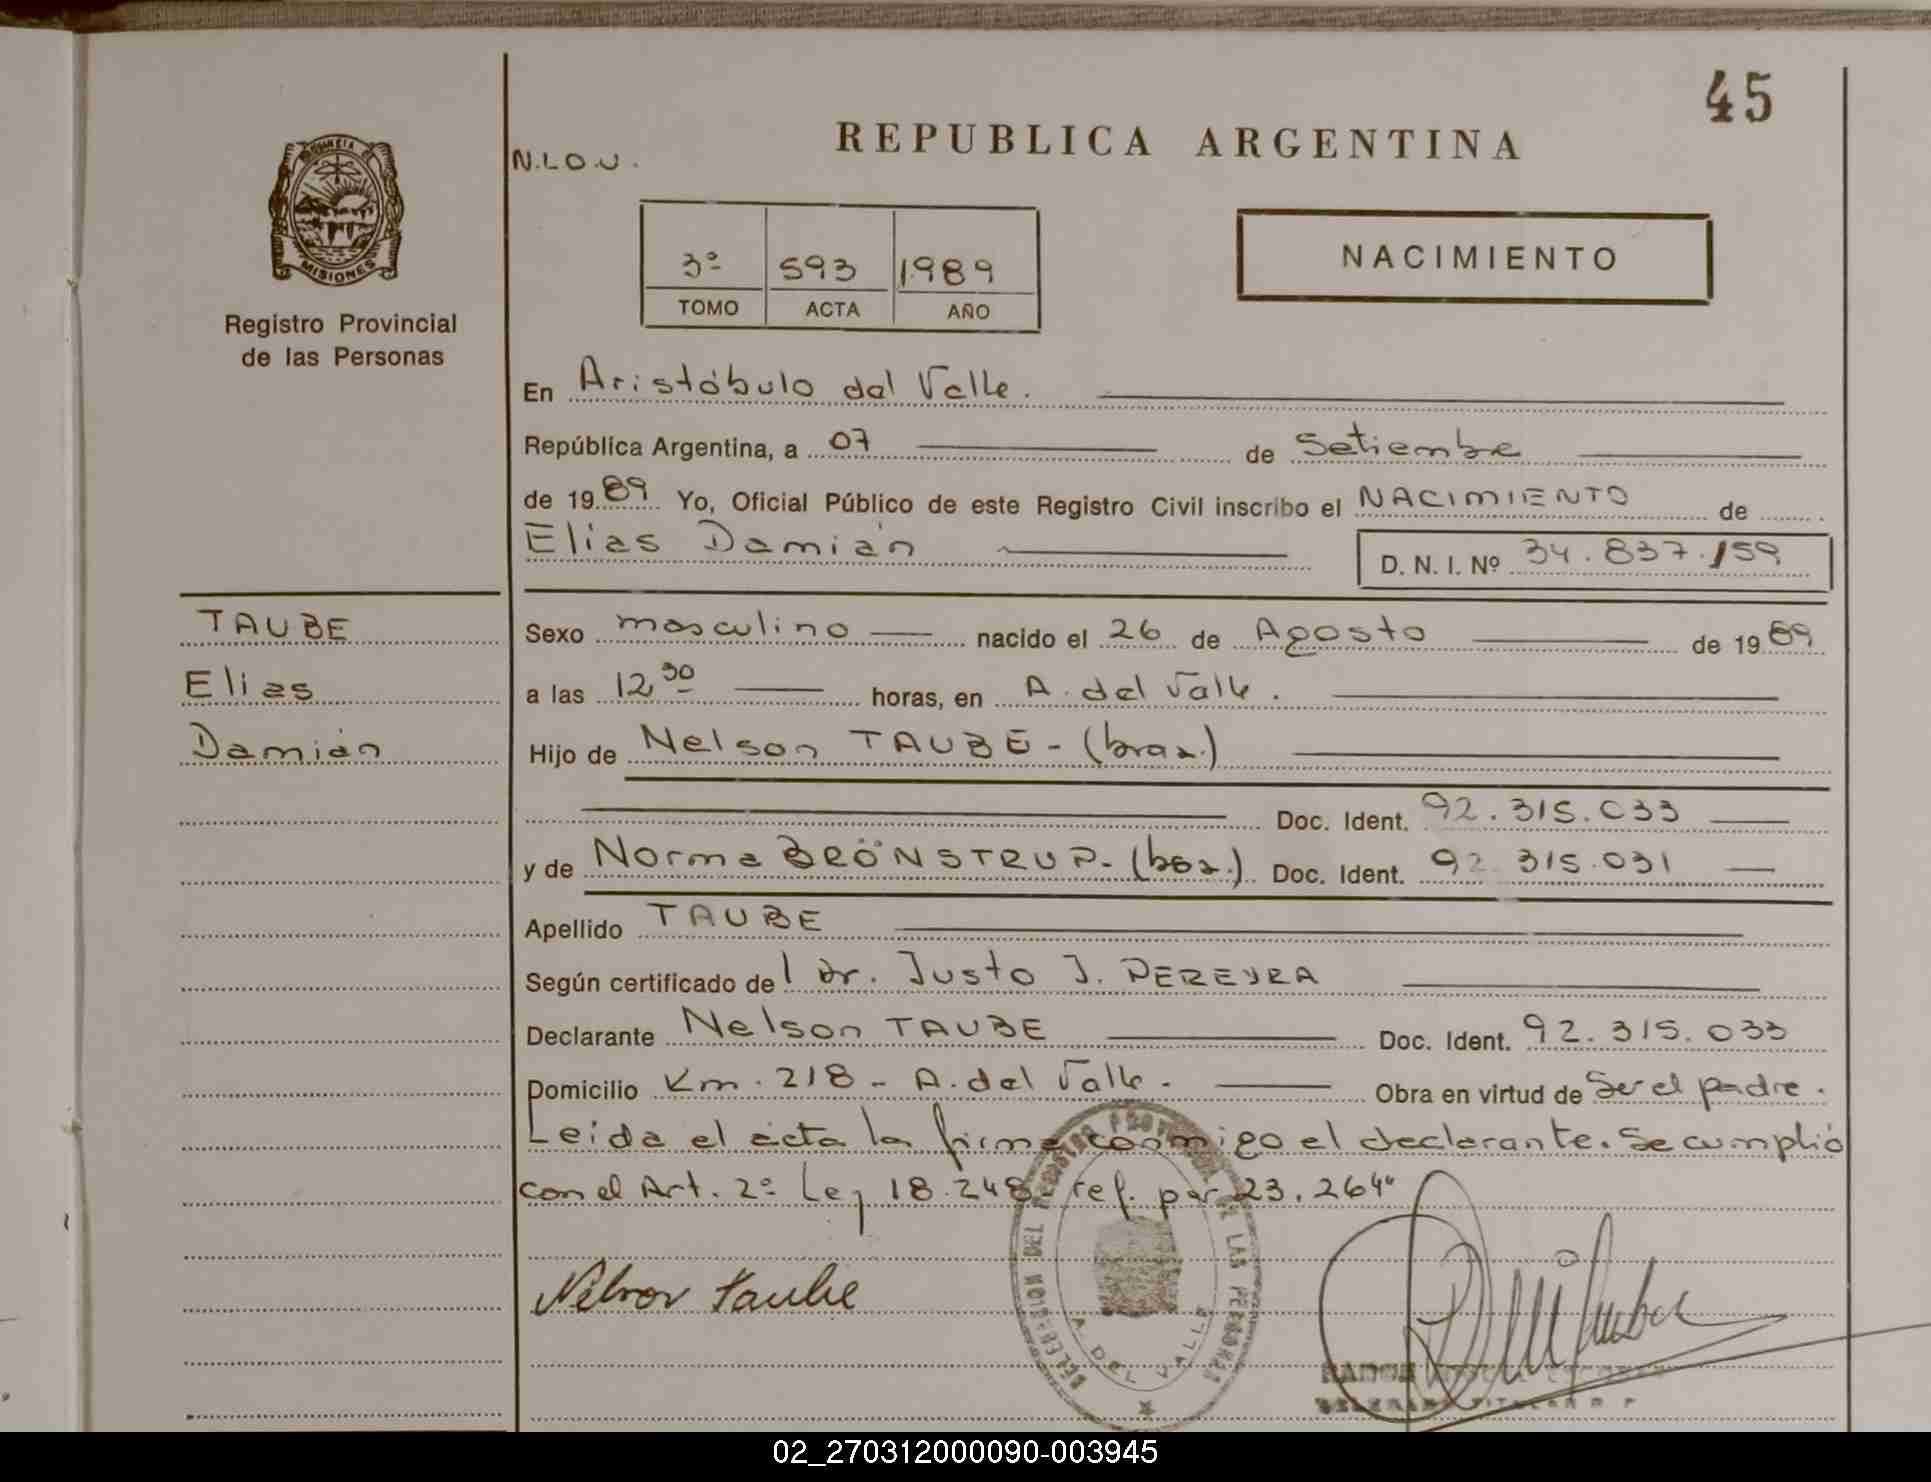 45
REPUBLICA ARGENTINA
N.I.O.U.
MISIONES
Registro Provincial
de las Personas
3º 593 1989
TOMO ACTA AÑO
NACIMIENTO
En Aristóbulo del Valle.
República Argentina, a 07 de Setiembre
de 1989 Yo, Oficial Público de este Registro Civil inscribo el NACIMIENTO de
Elías Damián D. N. I. Nº 34.837.159
TAUBE
Elias
Damián
Sexo masculino nacido el 26 de Agosto de 1989
a las 12,30 horas, en A. del Valle.
Hijo de Nelson TAUBE - (braz.)
Doc. Ident. 92.315.033
y de Norma BRÖNSTRUP - (bra.) Doc. Ident. 92.315.031
Apellido TAUBE
Según certificado del Dr. Justo J. PEREYRA
Declarante Nelson TAUBE Doc. Ident. 92.315.033
Domicilio Km. 218 - A. del Valle. Obra en virtud de Ser el padre.
Leída el acta la firma conmigo el declarante. Se cumplió
con el Art. 2º Ley 18.248 ref. por 23.264"
Nelson Taube
DELEGACION DEL REGISTRO PROVINCIAL DE LAS PERSONAS
A. DEL VALLE
RAMON
02_270312000090-003945